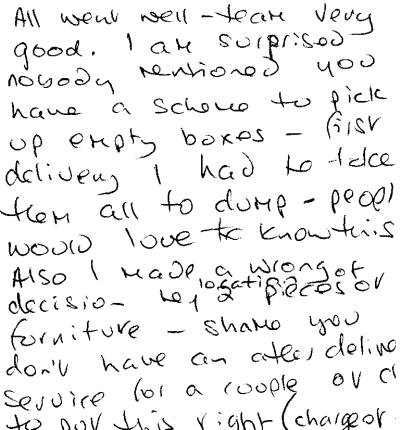 All went well - team very
good. I am surprised
nobody mentioned you
have a scheme to pick
up empty boxes - first
delivery I had to take
them all to dump - peopl
would love to know this
Also I made a wrong
decision location of
2 pieces of
furniture - shame you
don't have an after deliver
service for a couple of
to put this right (charge